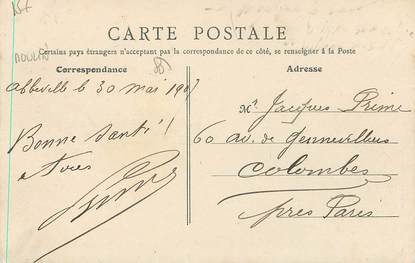 MOULIN
CARTE POSTALE
Certains pays étrangers n'acceptant pas la correspondance de ce côté, se renseigner à la Poste
Correspondance
Adresse
Abbeville le 30 mai 1907
Bonne Santé!
a tous
Mr Jacques Prime
60 av. de Gennevilliers
Colombes
près Paris